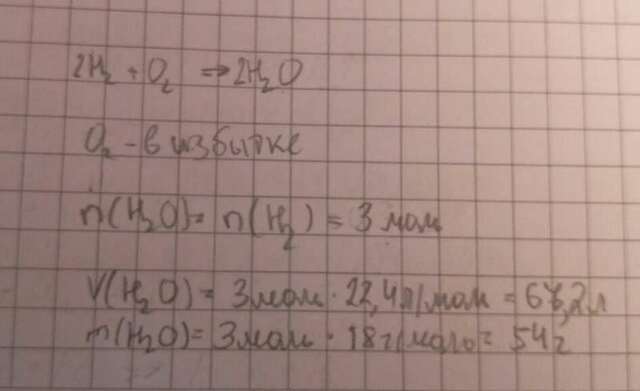 2H₂ + O₂ ⇒ 2H₂O
O₂ - в избытке
n(H₂O) = n(H₂) = 3 мол
V(H₂O) = 3 мол · 22,4 л/мол = 67,2 л
m(H₂O) = 3 мол · 18 г/моль = 54 г